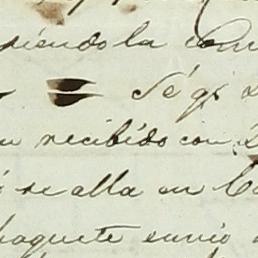 piendola con
Sé qe
recibido con
se alla en
paquete envio